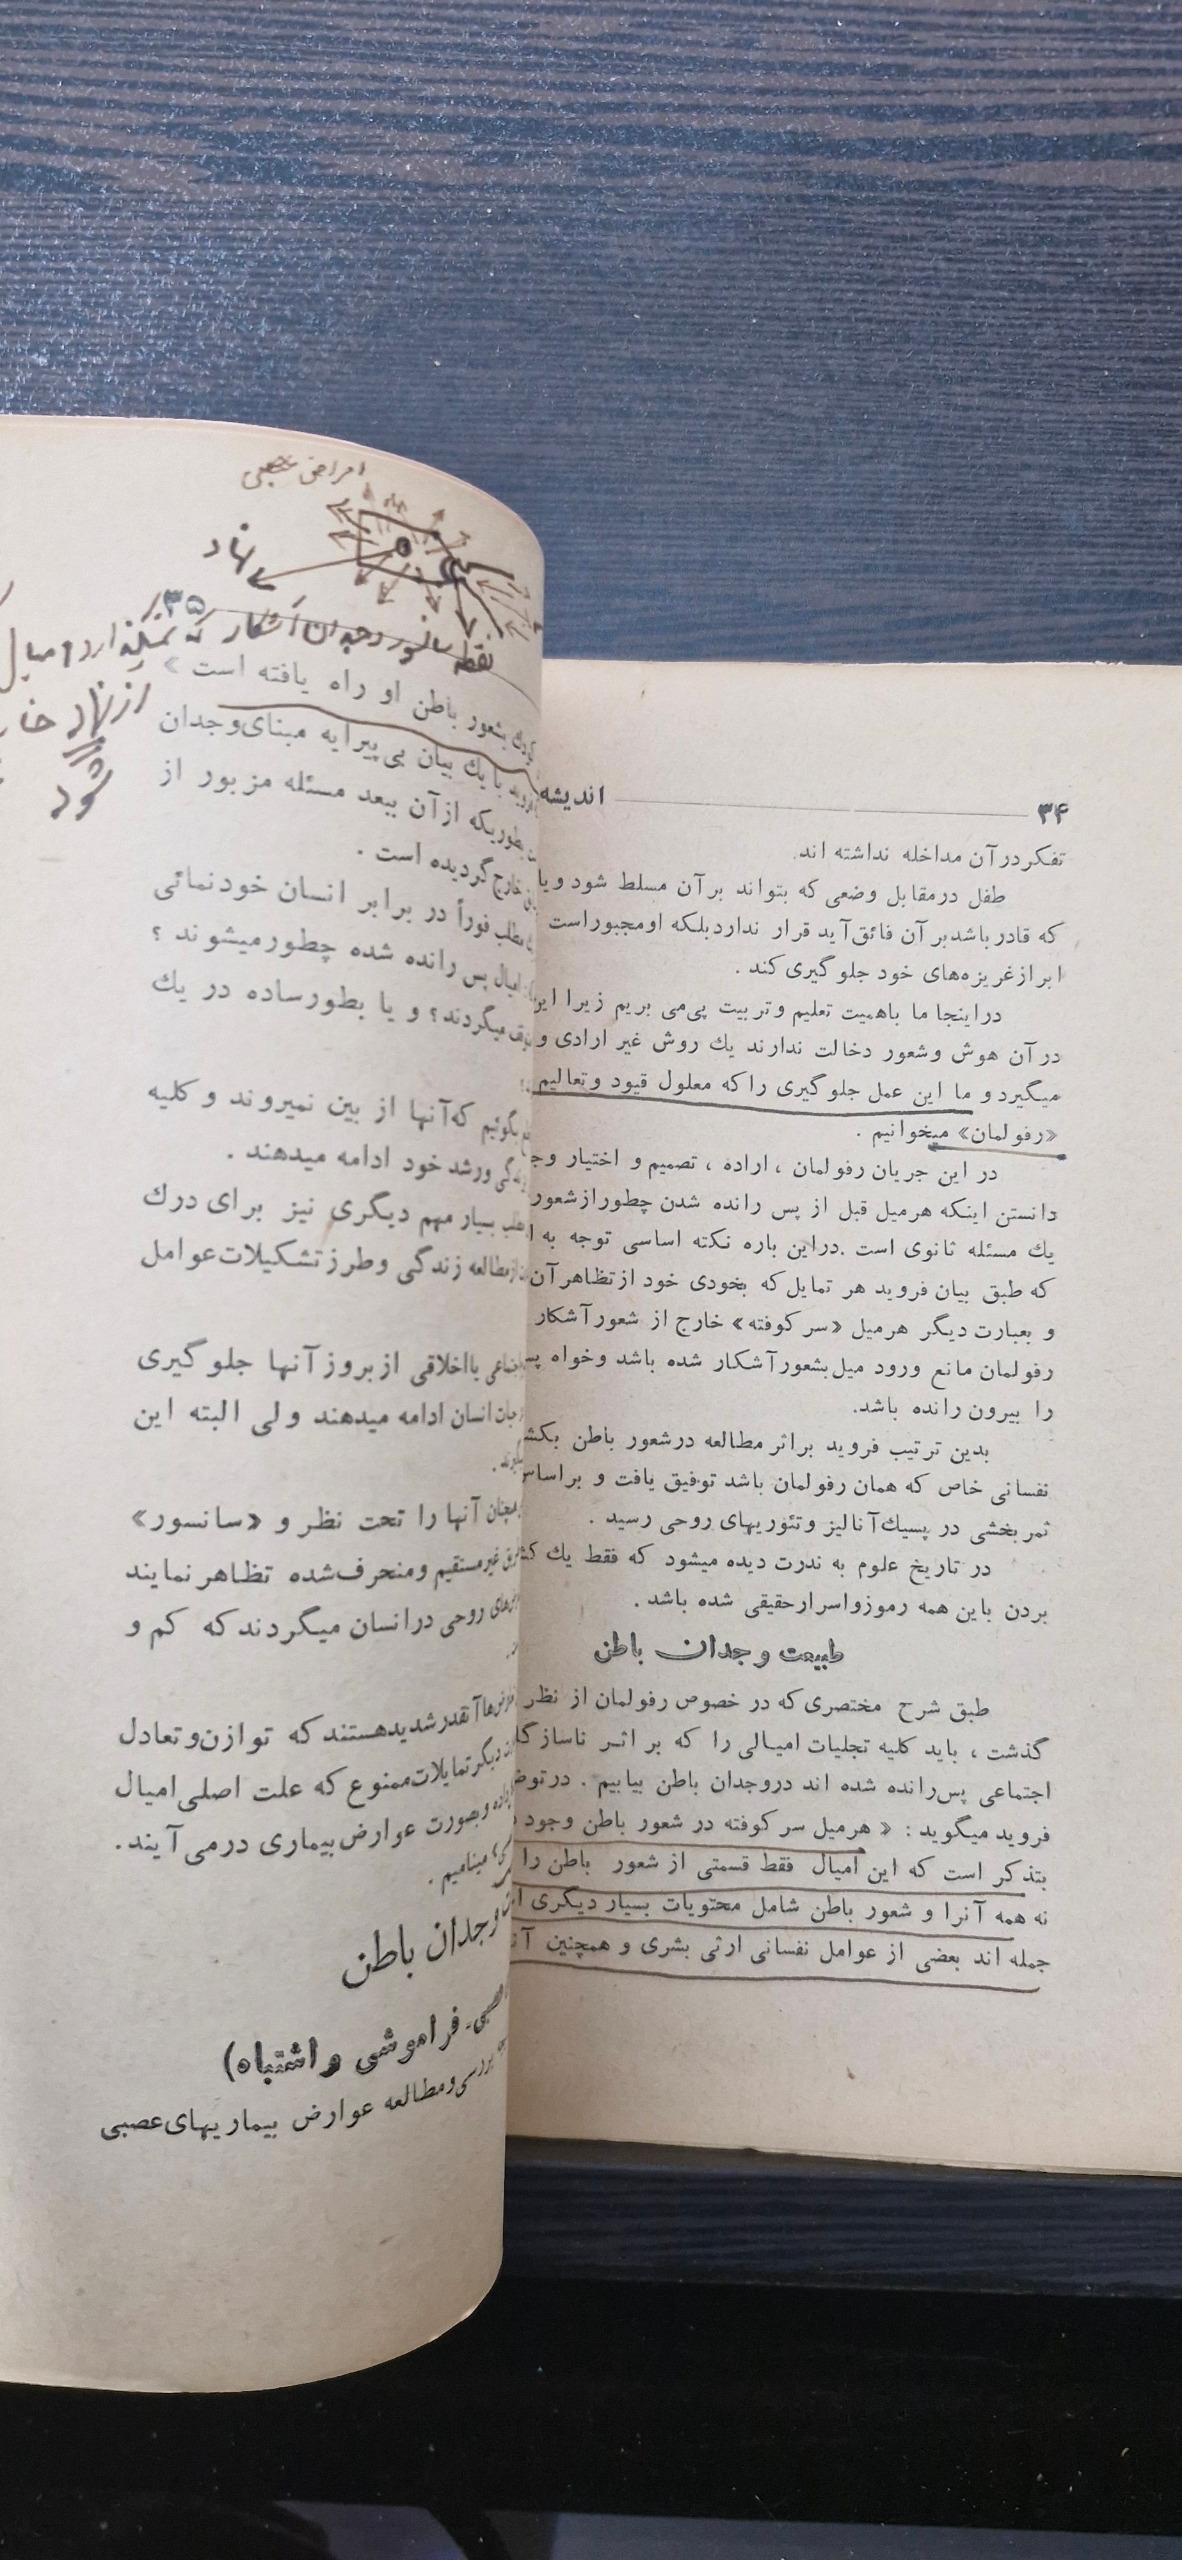 ۳۴
اندیشه
تفکر در آن مداخله نداشته اند.
طفل در مقابل وضعی که بتواند بر آن مسلط شود و یا
که قادر باشد بر آن فائق آید قرار ندارد بلکه او مجبور است
ابراز غریزه‌های خود جلوگیری کند .
در اینجا ما باهمیت تعلیم و تربیت پی می بریم زیرا
در آن هوش و شعور دخالت ندارند یك روش غیر ارادی و
میگیرد و ما این عمل جلوگیری را که معلول قیود و تعالیم
«رفولمان» میخوانیم .
در این جریان رفولمان ، اراده ، تصمیم و اختیار
دانستن اینکه هر میل قبل از پس رانده شدن چطور از شعور
یك مسئله ثانوی است . در این باره نکته اساسی توجه به
که طبق بیان فروید هر تمایل که بخودی خود از تظاهر آن
و بعبارت دیگر هر میل «سر کوفته» خارج از شعور آشکار
رفولمان مانع ورود میل بشعور آشکار شده باشد و خواه
را بیرون رانده باشد.
بدین ترتیب فروید بر اثر مطالعه در شعور باطن
نفسانی خاص که همان رفولمان باشد توفیق یافت و بر اساس
ثمر بخشی در پسیك آنالیز و تئوریهای روحی رسید .
در تاریخ علوم به ندرت دیده میشود که فقط یك
بردن باین همه رموز و اسرار حقیقی شده باشد .
طبیعت وجدان باطن
طبق شرح مختصری که در خصوص رفولمان از نظر
گذشت ، باید کلیه تجلیات امیالی را که بر اثر
اجتماعی پس رانده شده اند در وجدان باطن بیابیم .
فروید میگوید : « هر میل سر کوفته در شعور باطن وجود
بتذکر است که این امیال فقط قسمتی از شعور باطن را
نه همه آنرا و شعور باطن شامل محتویات بسیار دیگری
جمله اند بعضی از عوامل نفسانی ارثی بشری و همچنین
امراض عصبی
نهاد
۳۵
نقطه سانسور وجدان آشکار که نمیگذارد امیال
از نهاد
شود
بشعور باطن او راه یافته است »
با یك بیان بی پیرایه مبنای وجدان
بطوریکه از آن ببعد مسئله مزبور از
خارج گردیده است .
مطلب فوراً در برابر انسان خودنمائی
امیال پس رانده شده چطور میشوند ؟
میگردند ؟ و یا بطور ساده در یك
بگوئیم که آنها از بین نمیروند و کلیه
ورشد خود ادامه میدهند .
بسیار مهم دیگری نیز برای درك
مطالعه زندگی و طرز تشکیلات عوامل
یا اخلاقی از بروز آنها جلوگیری
انسان ادامه میدهند ولی البته این
همچنان آنها را تحت نظر و «سانسور»
غیر مستقیم و منحرف شده تظاهر نمایند
روحی در انسان میگردند که کم و
آنقدر شدید هستند که توازن و تعادل
دیگر تمایلات ممنوع که علت اصلی امیال
و بصورت عوارض بیماری درمی آیند .
مینامیم .
وجدان باطن
فراموشی و اشتباه)
و مطالعه عوارض بیماریهای عصبی